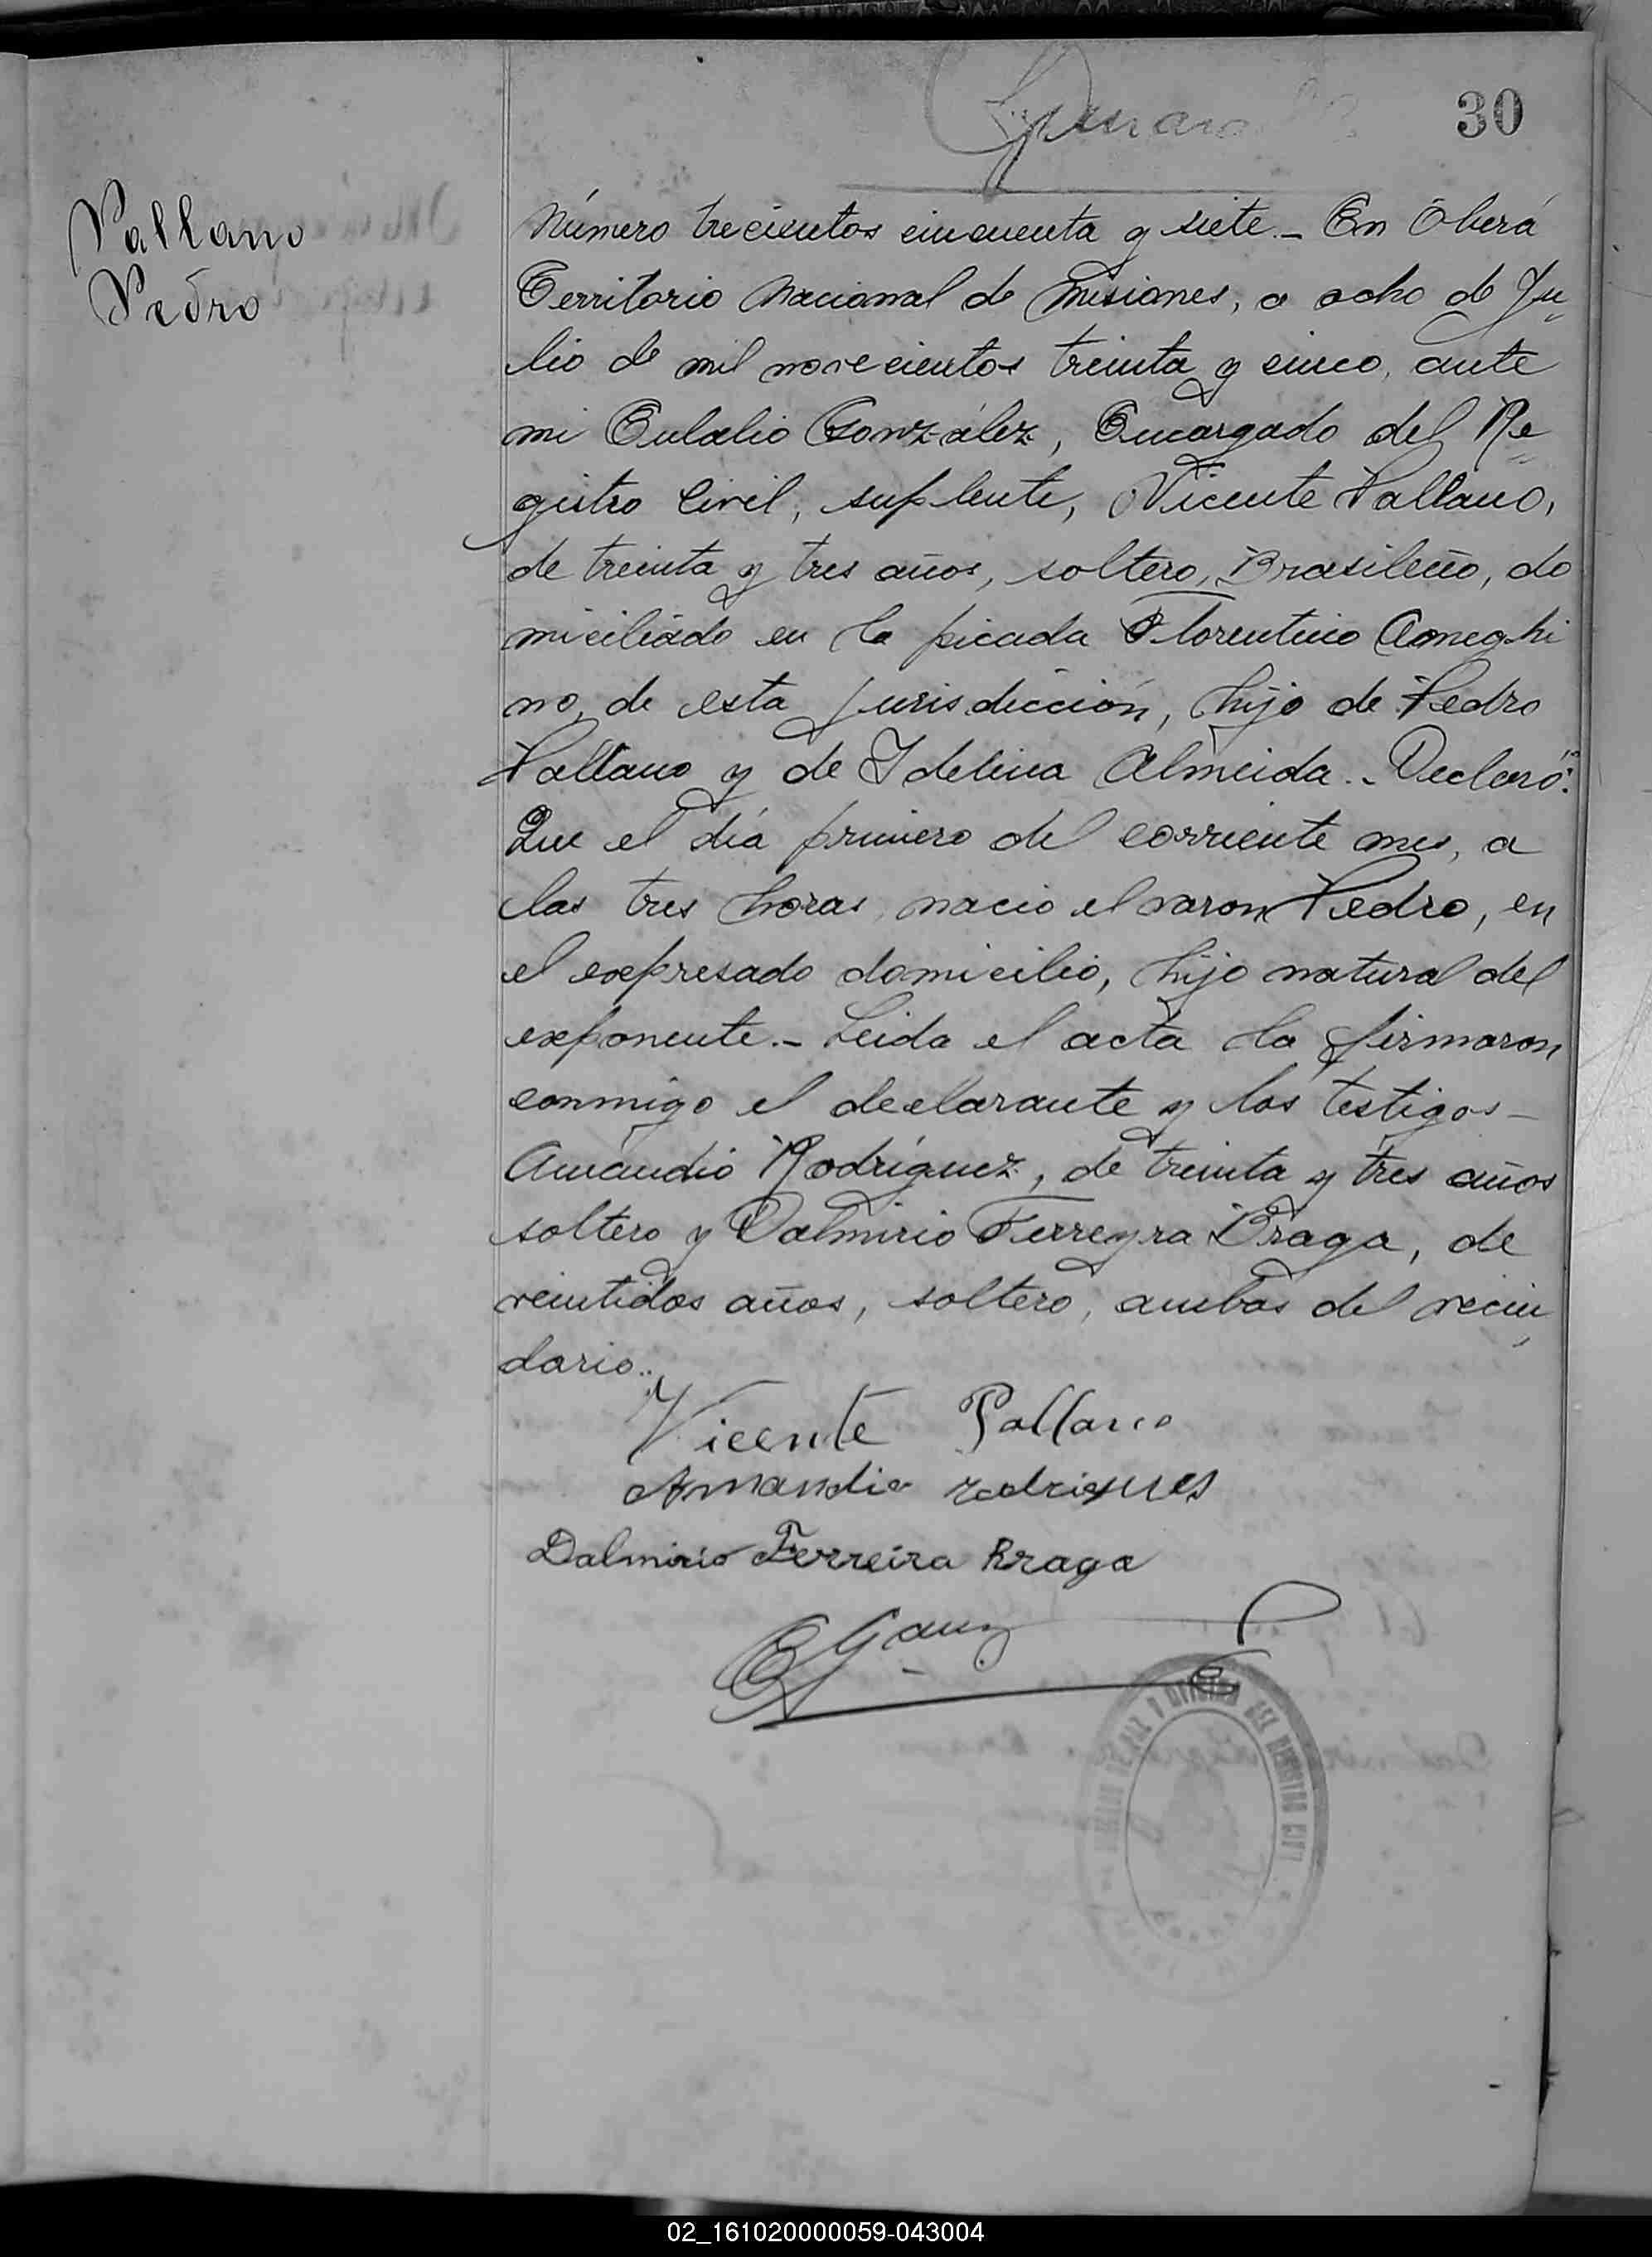 30
Pallano
Pedro
Número trecientos cincuenta y siete.- En Oberá
Territorio Nacional de Misiones, a ocho de Ju
lio de mil novecientos treinta y cinco, ante
mi Eulalio González, Encargado del Re
gistro Civil, suplente, Vicente Pallano,
de treinta y tres años, soltero, Brasileño, do
miciliado en la picada Florentino Ameghi
no, de esta jurisdicción, hijo de Pedro
Pallano y de Idelina Almeida.- Declaró:
Que el día primero del corriente mes, a
las tres horas, nacio el varon Pedro, en
el expresado domicilio, hijo natural del
exponente.- Leida el acta la firmaron
conmigo el declarante y los testigos-
Amandio Rodríguez, de treinta y tres años
soltero y Dalmirio Ferreyra Braga, de
veintidos años, soltero, ambos del vecin
dario..
Vicente Pallano
Amandio rodrigues
Dalmirio Ferreira Braga
DEL REGISTRO CIVIL
02_161020000059-043004